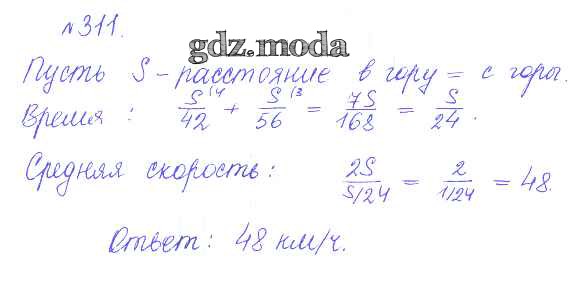 №311.
gdz.moda
Пусть S - расстояние в гору = с горы.
Время: S/42 (4 + S/56 (3 = 7S/168 = S/24.
Средняя скорость: 2S/(S/24) = 2/(1/24) = 48.
Ответ: 48 км/ч.